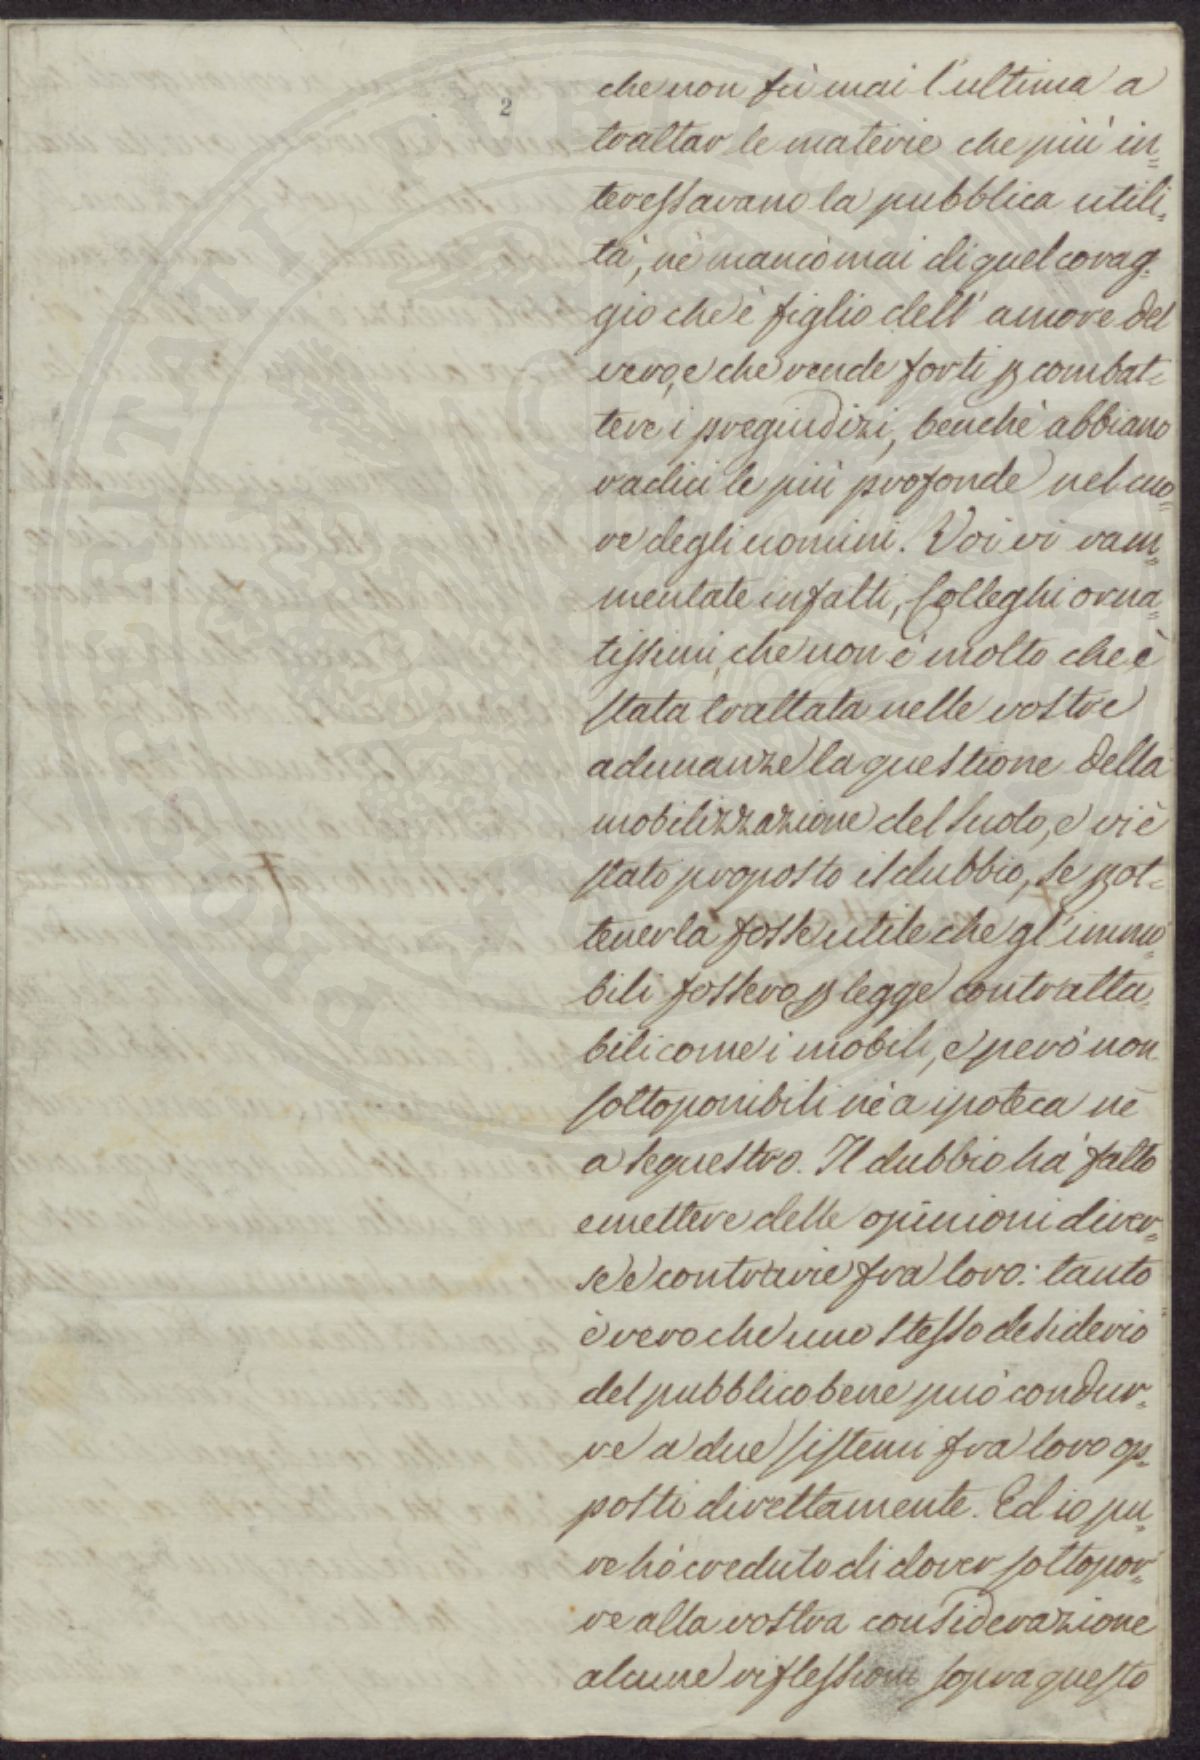 2
che non fù mai l'ultima a
trattar le materie che più in=
teressavano la pubblica utili=
tà, nè mancò mai di quel corag=
gio che è figlio dell' amore del
vero, e che rende forti p combat=
tere i pregiudizi, benchè abbiano
radici le più profonde nel cuo=
re degli uomini. Voi vi ram=
mentate infatti, Colleghi orna=
tissimi, che non è molto che è
stata trattata nelle vostre
adunanze la questione della
mobilizzazione del suolo, e vi è
stato proposto il dubbio, se p ot=
tenerla fosse utile che gl'immo=
bili fossero p legge contratta=
bili come i mobili, e però non
sottoponibili nè a ipoteca nè
a sequestro. Il dubbio hà fatto
emettere delle opinioni diver=
se e contrarie fra loro: tanto
è vero che uno stesso desiderio
del pubblico bene può condur=
re a due sistemi fra loro op=
posti direttamente. Ed io pu=
re hò creduto di dover sottopor=
re alla vostra considerazione
alcune riflessioni sopra questo
PROSPERITATI PUBLICAE